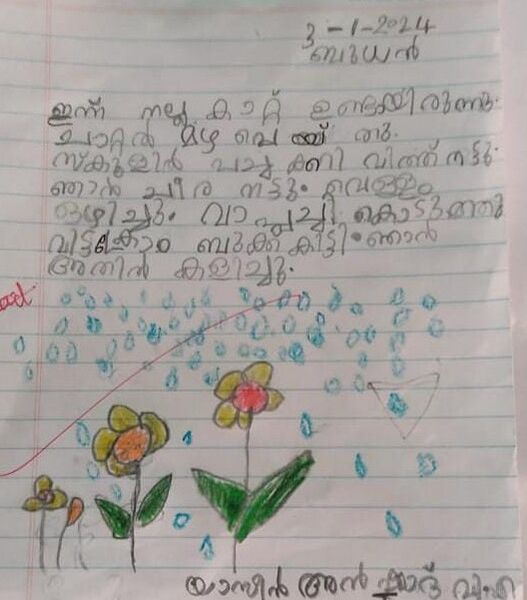 3-1-2024
ബുധൻ
ഇന്ന് നല്ല കാറ്റ് ഉണ്ടായിരുന്നു.
ചാറ്റൽ മഴ പെയ്തു.
സ്കൂളിൽ പച്ചക്കറി വിത്ത് നട്ടു.
ഞാൻ ചീര നട്ടു. വെള്ളം
ഒഴിച്ചു.
ബുക്ക് കിട്ടി. ഞാൻ
അതിൽ കളിച്ചു.
യാസീൻ അൻ